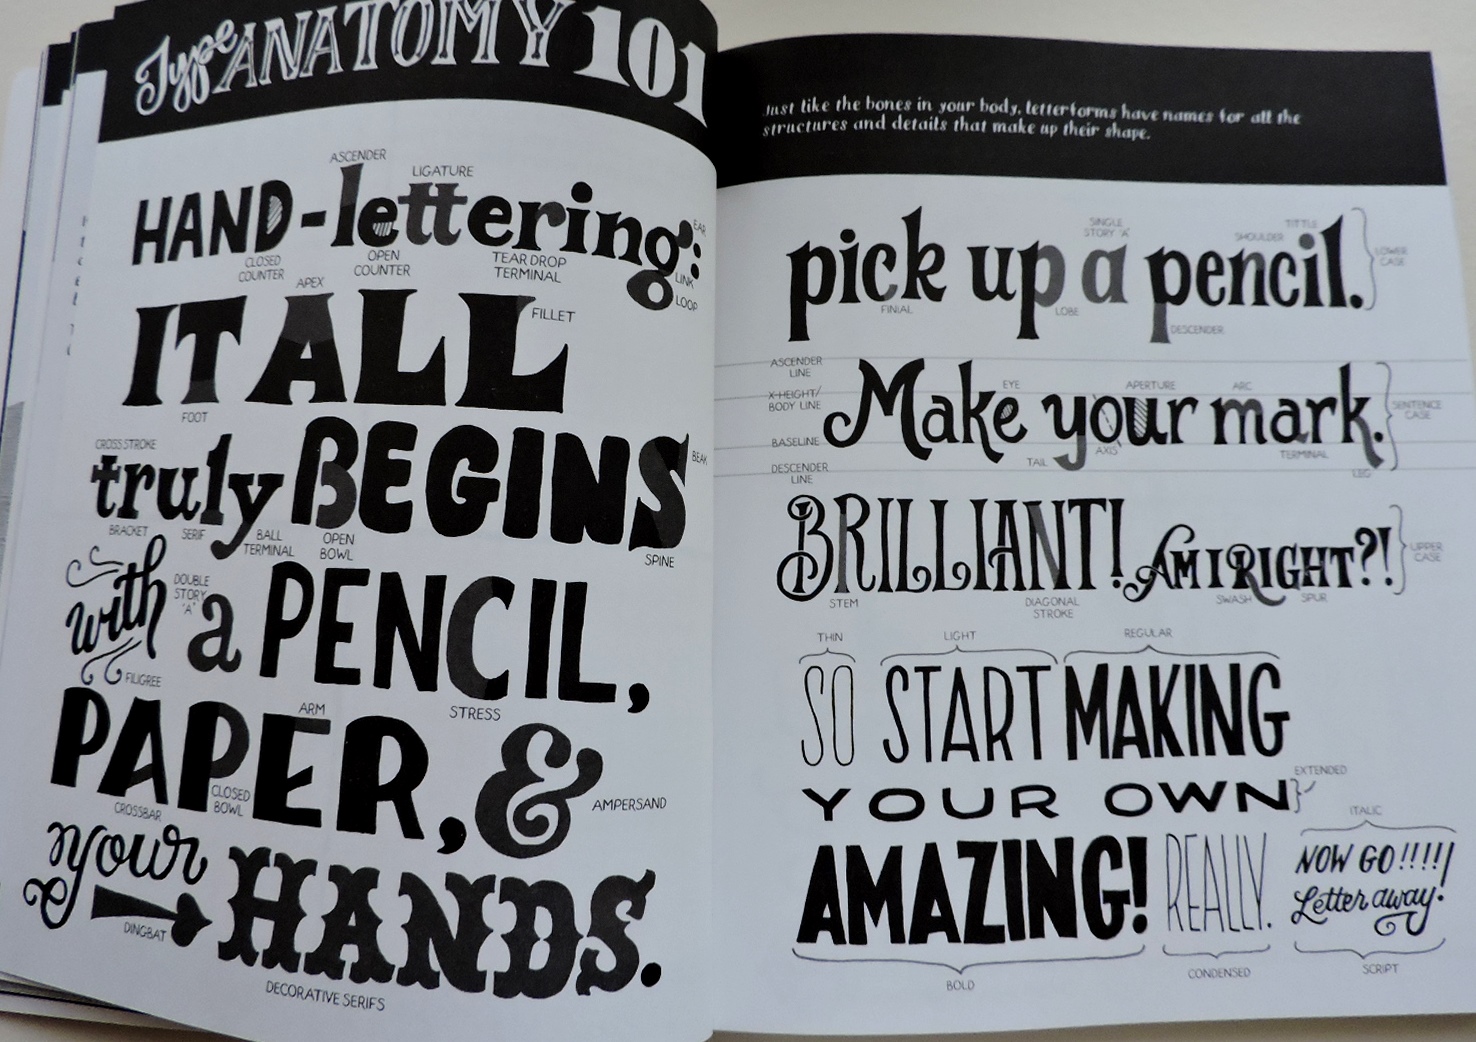 Type ANATOMY 101
ASCENDER
LIGATURE
HAND-lettering:
EAR
CLOSED COUNTER
OPEN COUNTER
TEAR DROP TERMINAL
LINK
LOOP
APEX
FILLET
IT ALL
FOOT
CROSS STROKE
truly BEGINS
BEAK
BRACKET
SERIF
BALL TERMINAL
OPEN BOWL
SPINE
with a PENCIL,
DOUBLE STORY 'A'
FILIGREE
ARM
STRESS
PAPER, &
CROSSBAR
CLOSED BOWL
AMPERSAND
your HANDS.
DINGBAT
DECORATIVE SERIFS
Just like the bones in your body, letterforms have names for all the
structures and details that make up their shape.
SINGLE STORY 'A'
SHOULDER
TITTLE
pick up a pencil.
LOWER CASE
FINIAL
LOBE
DESCENDER
ASCENDER LINE
X-HEIGHT/ BODY LINE
BASELINE
DESCENDER LINE
EYE
APERTURE
ARC
Make your mark.
SENTENCE CASE
TAIL
AXIS
TERMINAL
LEG
BRILLIANT! AM I RIGHT?!
UPPER CASE
STEM
DIAGONAL STROKE
SWASH
SPUR
THIN
LIGHT
REGULAR
SO START MAKING
YOUR OWN
EXTENDED
ITALIC
AMAZING! REALLY.
NOW GO!!!!!
Letter away!
BOLD
CONDENSED
SCRIPT